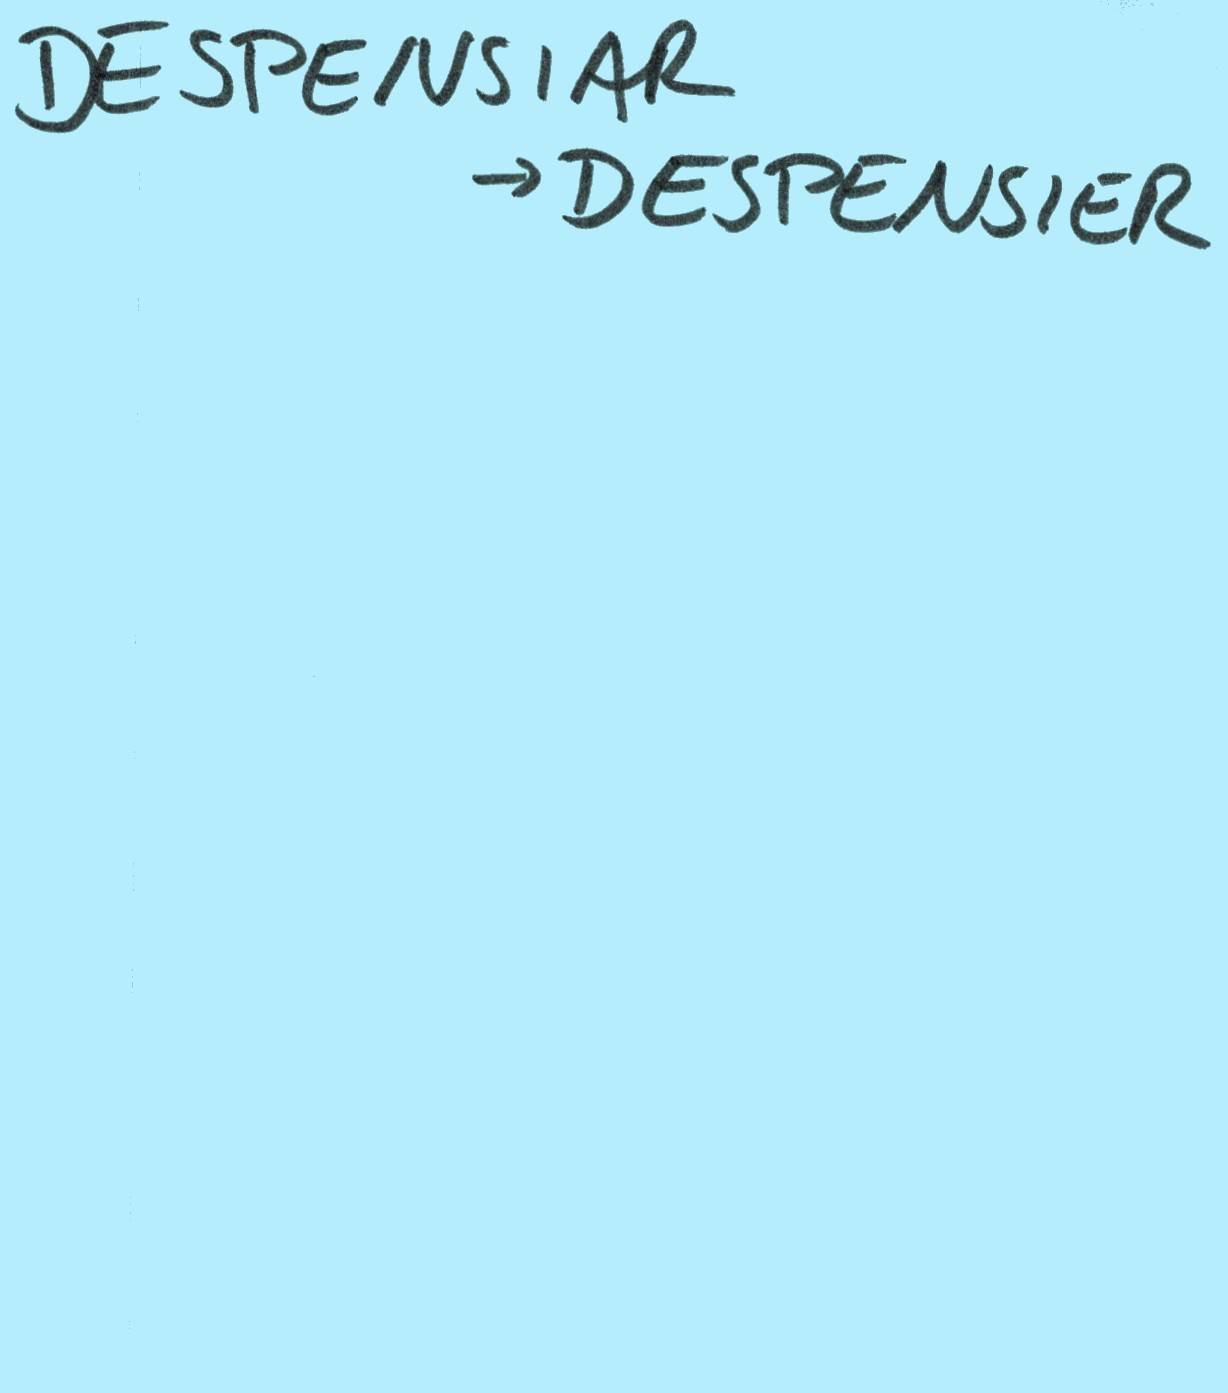 DESPENSIAR
→ DESPENSIER